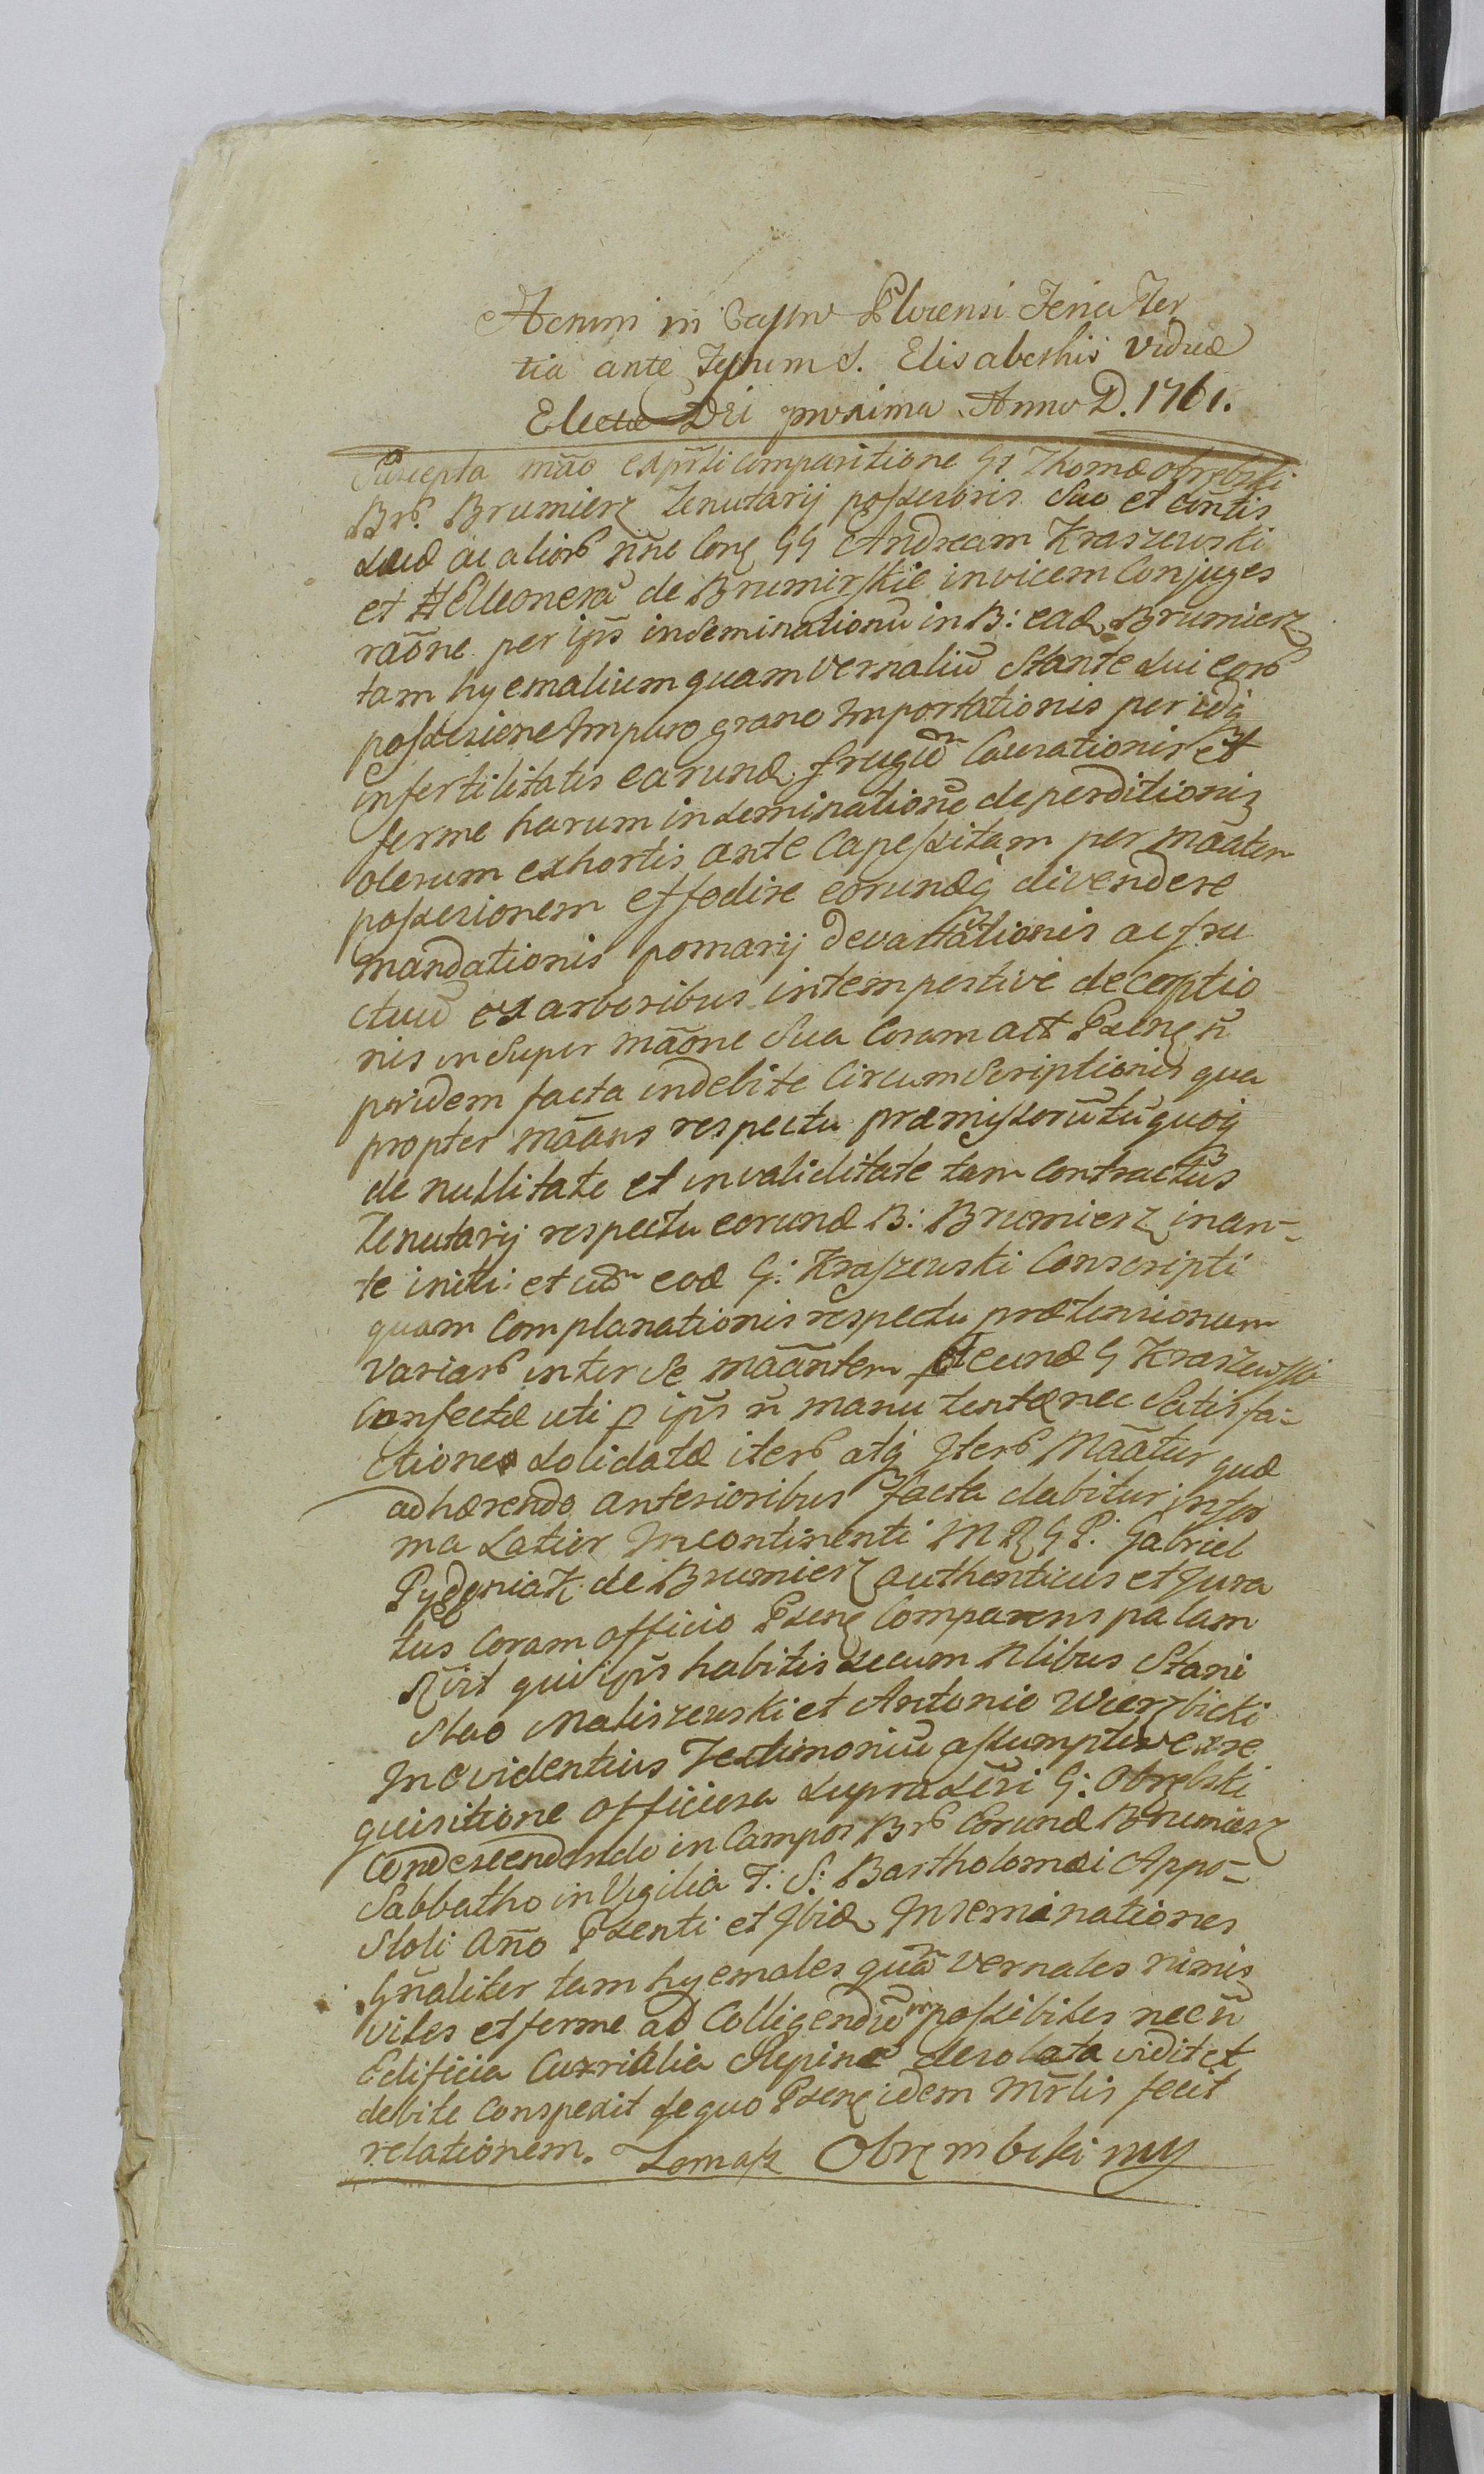 Actum in Castro Plocensi Feria Ter
tia ante Festum S. Elisabethis Viduæ
Electæ Dei proxima Anno D. 1761.
Suscepta mão expñti comparitione Gi Thomæ Obrębski
Brŏ. Brumierz tenutarij possesoris suo et cõntis
suæ ac aliorŏ nñe Conȝ GG Andream Kraszewski
et Elleonerã de Brumirskie invicem Conjuges
raõne per ipŝ inseminationũ in B: eadȝ Brumierz
tam hyemalium quam vernaliũ stante sui eorŏ
possesione impuro grano importationis per idqȝ
infertilitatis earundȝ frugiũ Causationis et
ferme harum inseminationũ deperditionis
olerum ex hortis ante Capessitam per mãntem
possesionem effodire eorundqȝ divendere
mandationis pomarij devastationis ac fru
ctuũ ex arboribus intempestive deceptio
nis insuper mãone sua Coram act Psenȝ ñ
pridem facta indebite Circumscriptionis qua
propter mãans respectu præmissorũ tũ quoqȝ
de nullitate et invaliditate tam Contractus
tenutarij respectu eorund B: Brumierz inan-
te initi et cũ eod G: Kraszewski Conscripti
quam Complanationis respectu prætensionum
variarŏ inter se mãantem et eund G Kraszewski
Confectæ uti p ipŝ ñ manu tentæ nec satisfa-
ctione solidatæ iterŏ atqȝ iterŏ Mãatur quæ
adhærendo anterioribus facta dabitur in for
ma Latior Incontinenti M R G P. Gabriel
de Brumierz authenticus et Jura
tus Coram officio Psenȝ Comparens palam
Rvit qui ipŝ habitis secum Nlibus Stani
slao Maliszewski et Antonio Wierzbicki
In evidentius Testimoniũ assumptis exre
quisitione officiosa supradĩcti G: Obrębski
Condescendendo in Campos Brŏ Eorund Brumierz
Sabbatho in Vigilia F: S: Bartholomæi Appo-
stoli Año Psenti et Ibidȝ Inseminationes
Gñaliter tam hyemales quã vernales nimis
viles et ferme ad Colligendũ impossibiles nec ñ
Edificia Curialia desolata vidit et
debite Conspexit de quo Psenȝ idem Mrlis fecit
relationem. Tomasz Obrembski mp